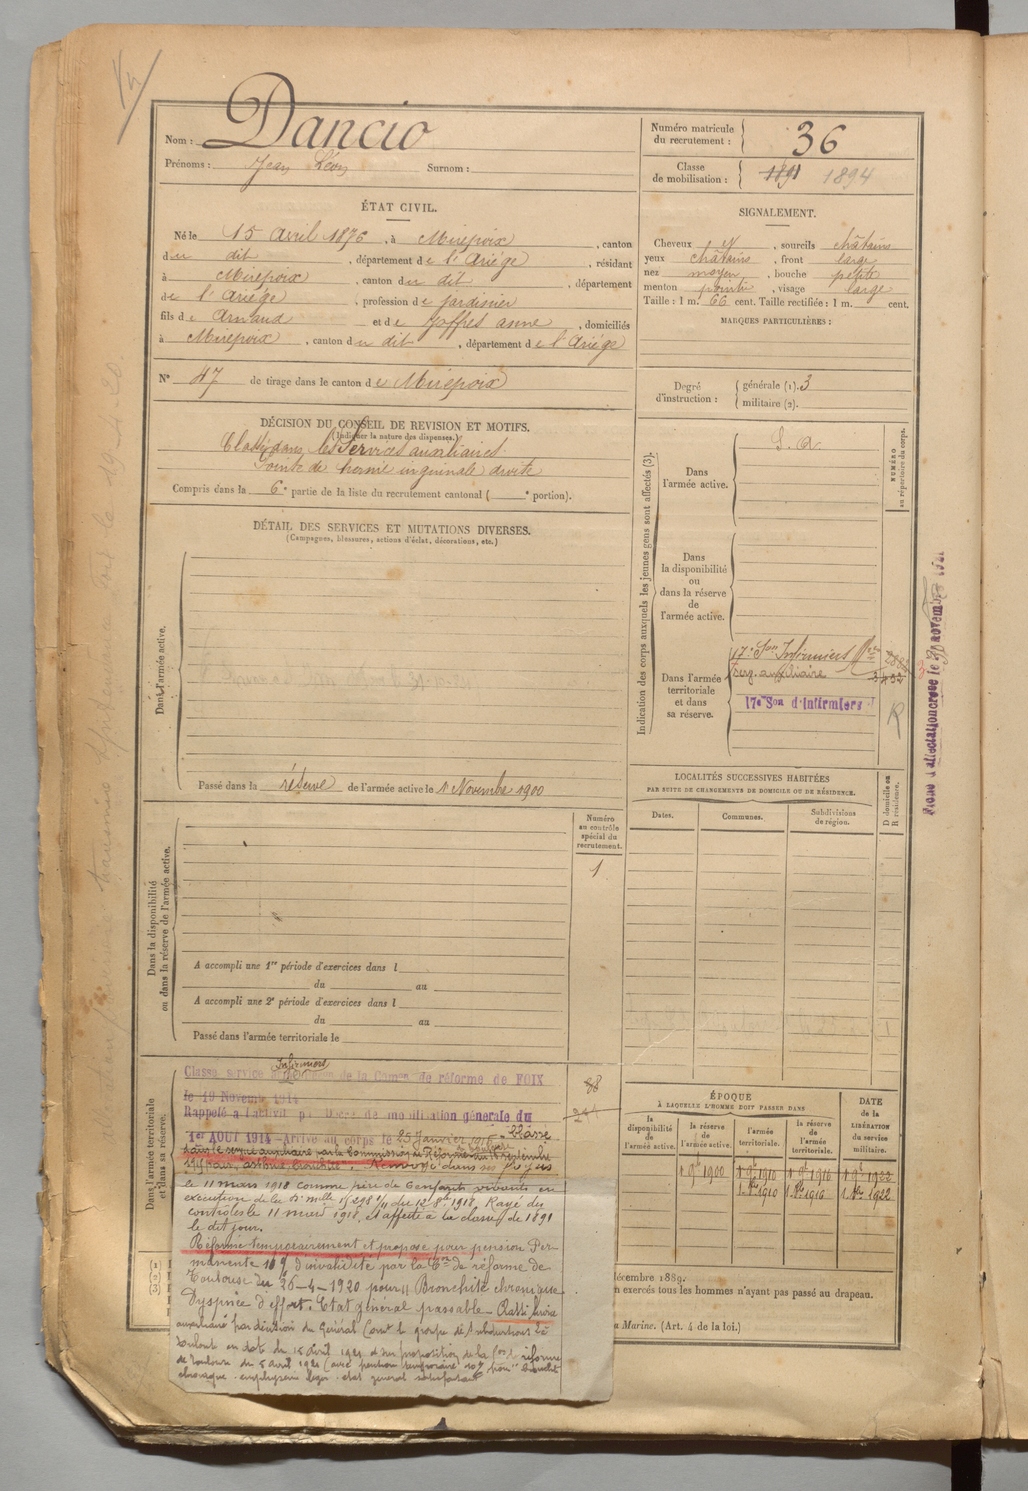 Nom : Dancio
Prénoms : Jean Léon Surnom :
Numéro matricule du recrutement : 36
Classe de mobilisation : 1891 1894
ÉTAT CIVIL.
Né le 15 avril 1876, à Mirepoix, canton
du dit, département de l'Ariège, résidant
à Mirepoix, canton du dit, département
de l'Ariège, profession de jardinier
fils de Arnaud et de Joffres anne, domiciliés
à Mirepoix, canton du dit, département de l'Ariège
N° 47 de tirage dans le canton de Mirepoix
SIGNALEMENT.
Cheveux et, sourcils châtains
yeux châtains, front large
nez moyen, bouche petite
menton pointu, visage large
Taille : 1 m. 66 cent. Taille rectifiée : 1 m. cent.
MARQUES PARTICULIÈRES :
Degré d'instruction : générale (1). 3
militaire (2).
DÉCISION DU CONSEIL DE REVISION ET MOTIFS.
(Indiquer la nature des dispenses.)
Classé dans les Services auxiliaires
Pointe de hernie inguinale droite
Compris dans la 6e partie de la liste du recrutement cantonal ( e portion).
DÉTAIL DES SERVICES ET MUTATIONS DIVERSES.
(Campagnes, blessures, actions d'éclat, décorations, etc.)
Dans l'armée active.
Passé dans la réserve de l'armée active le 1er Novembre 1900
Indication des corps auxquels les jeunes gens sont affectés (3).
NUMÉRO au répertoire du corps.
Dans l'armée active.
S. a.
Dans la disponibilité ou dans la réserve de l'armée active.
Dans l'armée territoriale et dans sa réserve.
17e Son Infirmiers
Serv. auxiliaire
17e Son d'Infirmiers
R
LOCALITÉS SUCCESSIVES HABITÉES
PAR SUITE DE CHANGEMENTS DE DOMICILE OU DE RÉSIDENCE.
Dates. Communes. Subdivisions de région. D domicile ou R résidence.
Numéro au contrôle spécial du recrutement.
1
Dans la disponibilité ou dans la réserve de l'armée active.
A accompli une 1re période d'exercices dans l
du au
A accompli une 2e période d'exercices dans l
du au
Passé dans l'armée territoriale le
Dans l'armée territoriale et dans sa réserve.
Infirmiers
Classé service de la Comon de réforme de FOIX
le 19 Novemb 1914
88
Rappelé à l'activité Décret de mobilisation générale du
1er AOUT 1914 - Arrivé au corps le 25 Janvier 1915 - Classé
dans le service auxiliaire par la Commission de Réforme
Renvoyé dans ses foyers
le 11 mars 1918 comme père de enfants vivants en
exécution de la Cre mlle du 1918. Rayé des
contrôles le 11 mars 1918, et affecté à la classe de 1891
le dit jour.
Réformé temporairement et proposé pour pension Per-
manente 10 % d'invalidité par la Con de réforme de
Toulouse du 26-4-1920 pour Bronchite chronique
Dyspnée d'effort. Etat général passable
auxiliaire par décision du Général Comt le groupe de Subdivisions de
Toulouse en date du 15 avril 1921 et sur proposition de la Con de réforme
de Toulouse du 5 avril 1921 (avec pension temporaire 10 % pour bronchite
chronique emphysème léger état général satisfaisant
ÉPOQUE
À LAQUELLE L'HOMME DOIT PASSER DANS
la disponibilité de l'armée active. la réserve de l'armée active. l'armée territoriale. la réserve de l'armée territoriale.
DATE de la LIBÉRATION du service militaire.
1 9bre 1900 1 9bre 1910 1 9bre 1916 1 9bre 1922
1 Nbre 1910 1 Nbre 1916 1 Nbre 1922
décembre 1889.
n exercés tous les hommes n'ayant pas passé au drapeau.
a Marine. (Art. 4 de la loi.)